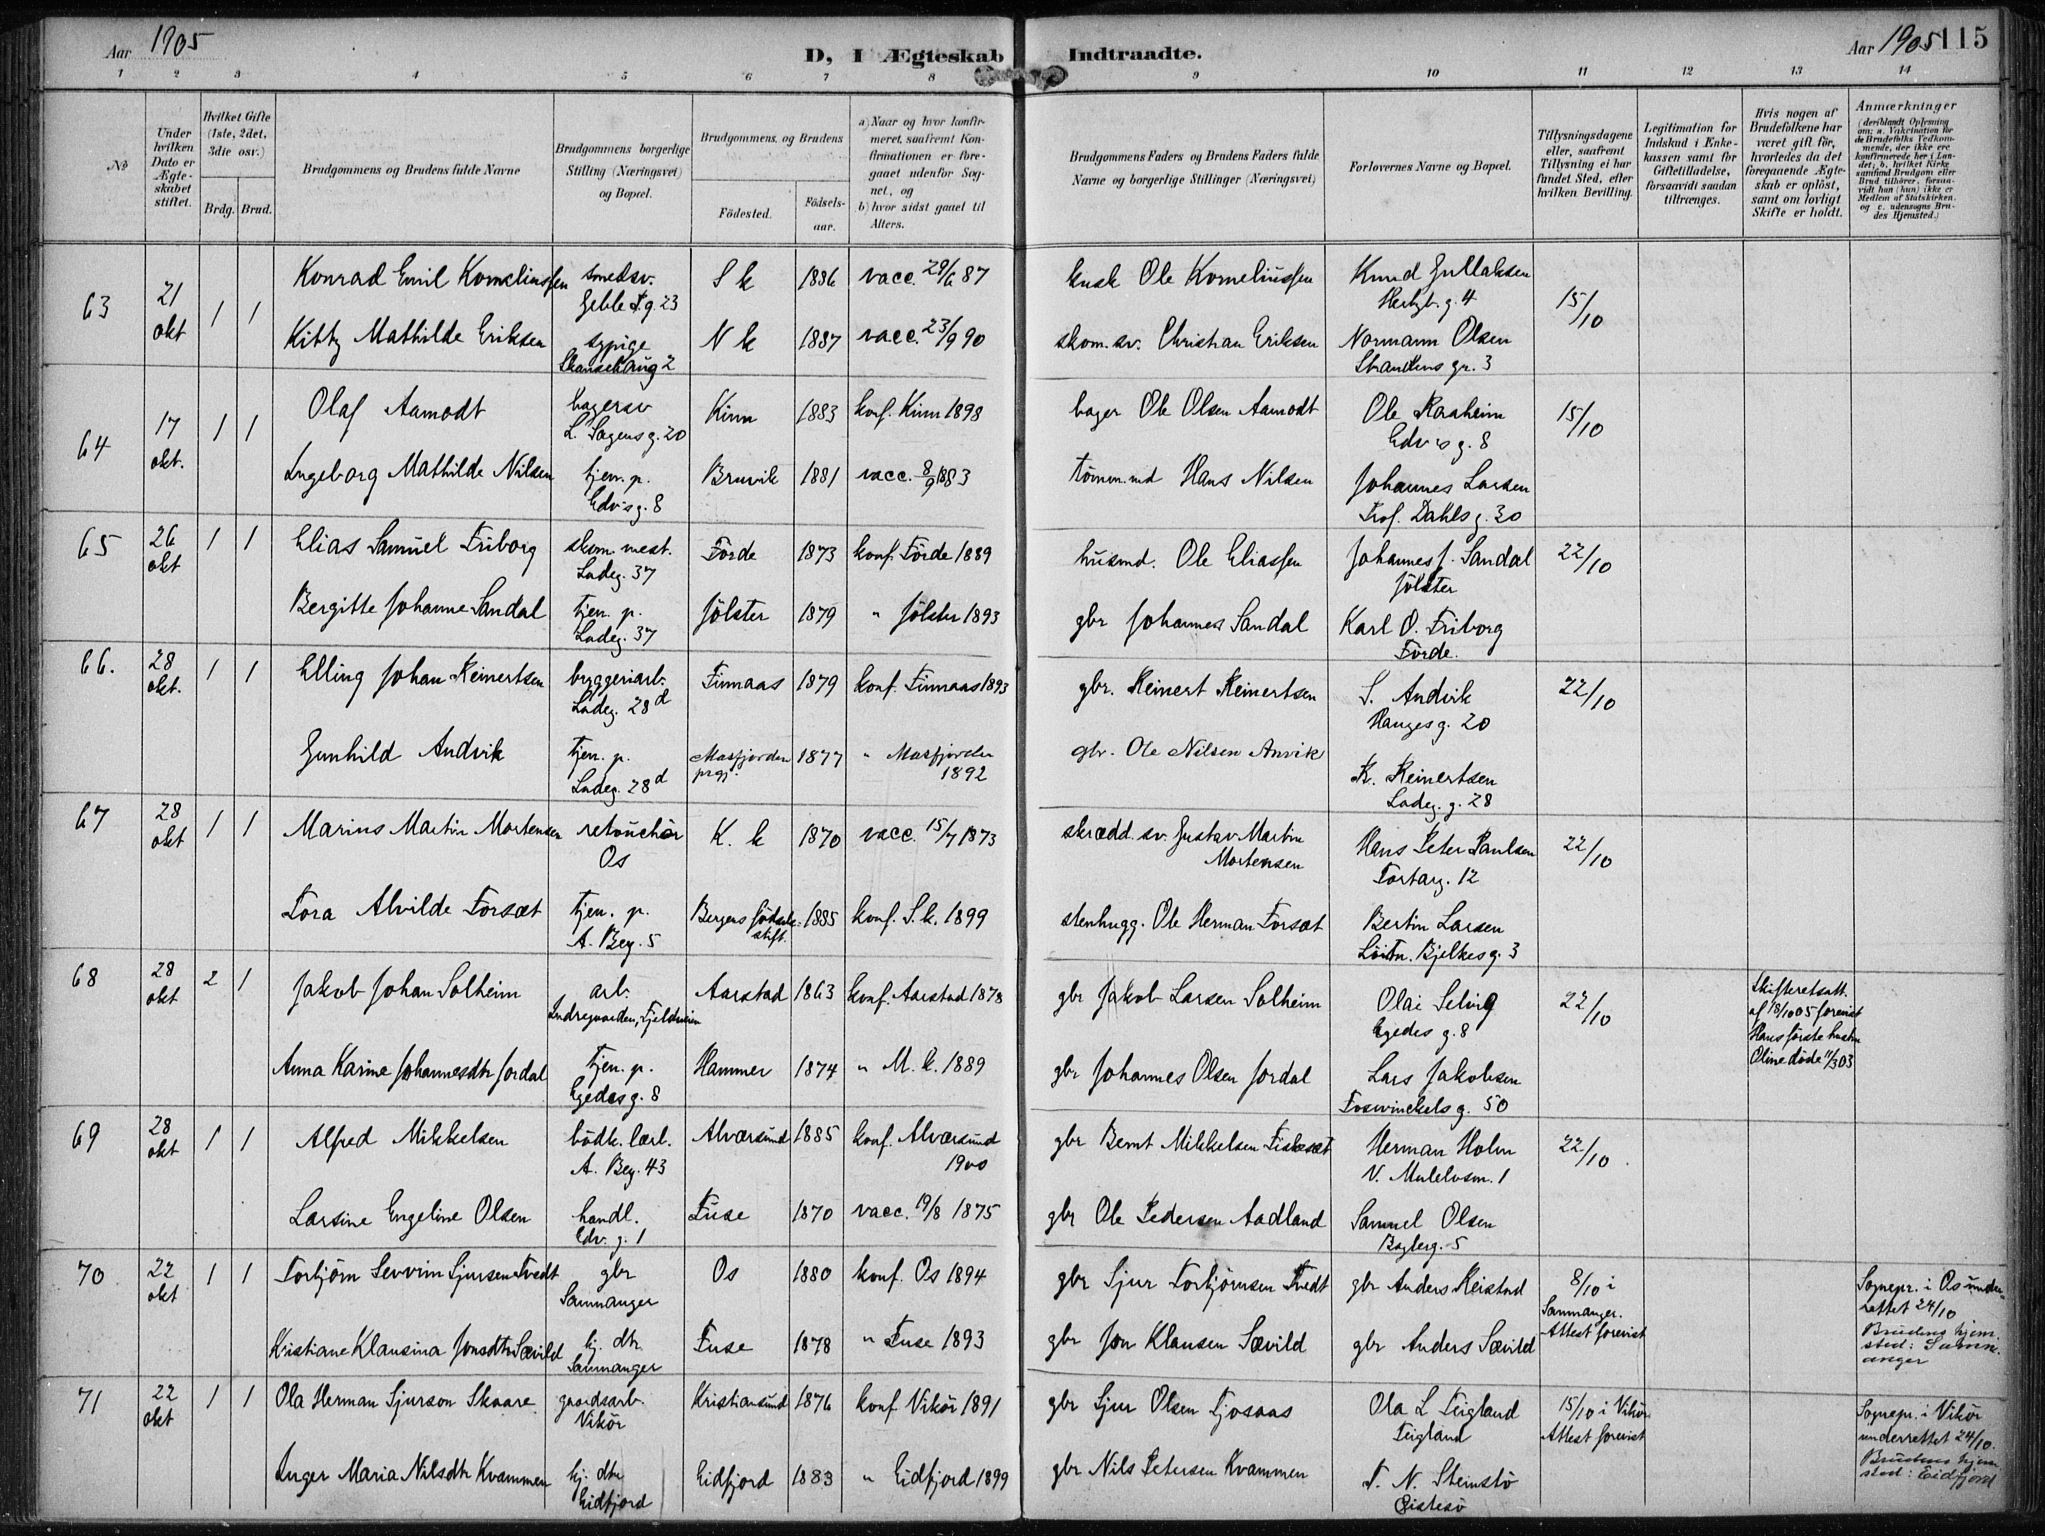 Aar 1905
D, I Ægteskab Indtraadte.
Aar 1905
115
1 2 3 4 5 6 7 8 9 10 11 12 13 14
No
Under hvilken Dato er Ægteskabet stiftet.
Hvilket Gifte (1ste, 2det, 3die osv.)
Brdg. Brud.
Brudgommens og Brudens fulde Navne
Brudgommens borgerlige Stilling (Næringsvei) og Bopæl.
Brudgommens og Brudens
Fødested.
Fødselsaar.
a) Naar og hvor konfirmeret, saafremt Konfirmationen er foregaaet udenfor Sognet, og
b) hvor sidst gaaet til Alters.
Brudgommens Faders og Brudens Faders fulde Navne og borgerlige Stillinger (Næringsvei)
Forlovernes Navne og Bopæl.
Tillysningsdagene eller, saafremt Tillysning ei har fundet Sted, efter hvilken Bevilling.
Legitimation for Indskud i Enkekassen samt for Giftetilladelse, forsaavidt saadan tiltrænges.
Hvis nogen af Brudefolkene har været gift før, hvorledes da det foregaaende Ægteskab er opløst, samt om lovligt Skifte er holdt.
Anmærkninger (deriblandt Oplysning om: a. Vakcination for de Brudefolks Vedkommende, der ikke ere konfirmerede her i Landet; b. hvilket Kirkesamfund Brudgom eller Brud tilhører, forsaavidt han (hun) ikke er Medlem af Statskirken. og c. udensogns Brudes Hjemsted.)
63 21 okt 1 1 Konrad Emil Korneliussen smedsv. S k 1886 vacc. 29/6 87 kusk Ole Korneliussen Knud Gullaksen 15/10
g. 23 g. 4
Kitty Mathilde Eriksen sypige N k 1887 vacc. 23/9 90 skom. sv. Christian Eriksen Normann Olsen
2 gr. 3
64 17 okt. 1 1 Olaf Aamodt bagersv Kinn 1883 konf. Kinn 1898 bager Ole Olsen Aamodt Ole Raaheim 15/10
L. Sagens g. 20 Edv's g. 8
Ingeborg Mathilde Nilsen tjen. p. Bruvik 1881 vacc. 8/9 1883 tømm. md Hans Nilsen Johannes Larsen
Edv's g. 8 Prof. Dahls g. 30
65 26 okt 1 1 Elias Samuel Friborg skom. mest. Førde 1873 konf. Førde 1889 husmd. Ole Eliassen Johannes J. Sandal 22/10
Ladeg. 37 Jølster
Bergitte Johanne Sandal tjen. p. Jølster 1879 " Jølster 1893 gbr Johannes Sandal Karl O. Friborg
Ladeg. 37 Førde.
66. 28 okt. 1 1 Elling Johan Reinertsen bryggeriarb. Finnaas 1879 konf. Finnaas 1893 gbr. Reinert Reinertsen S. Andvik 22/10
Ladeg. 28d Hauges g. 20
Gunhild Andvik tjen. p. Masfjorden prgj. 1877 " Masfjorden 1892 gbr. Ole Nilsen Anvik R. Reinertsen
Ladeg. 28d Ladeg. g. 28
67 28 okt 1 1 Marius Martin Mortensen retouchør K. k 1870 vacc. 15/7 1873 skrædd. sv. Gustav Martin Mortensen Hans Peter Paulsen 22/10
Os 12
Tora Alvilde Forsæt tjen. p. Bergens fødselsstift. 1885 konf. S. k. 1899 stenhugg. Ole Herman Forsæt Bertin Larsen
A. Beg. 5 Løitn. Bjelkes g. 3
68 28 okt 2 1 Jakob Johan Solheim arb. Aarstad 1863 konf. Aarstad 1878 gbr Jakob Larsen Solheim Olai Selvig 22/10 Skifteretsatt. af 18/10 05 forevist
Egedes g. 8 Hans første hustru
Anna Karine Johannesdtr Jordal tjen. p. Hammer 1874 " M. k. 1889 gbr Johannes Olsen Jordal Lars Jakobsen Oline døde 11/3 03
Egedes g. 8 Foswinckels g. 50
69 28 okt 1 1 Alfred Mikkelsen bødk. lærl. Alværsund 1885 konf. Alværsund 1900 gbr Bernt Mikkelsen Fiskesæt Herman Holm 22/10
A. Beg. 43 V. Mulelvsm. 1
Larsine Engeline Olsen handl. Fuse 1870 vacc. 19/8 1875 gbr Ole Pedersen Aadland Samuel Olsen
Edv. g. 1 5
70 22 okt 1 1 Torbjørn Sevrin Sjursen Tvedt gbr Os 1880 konf. Os 1894 gbr Sjur Torbjørnsen Tvedt gbr Anders Reistad 8/10 i Samnanger. Attest forevist Sognepr. i Os underrettet 24/10
Samnanger
Kristiane Klausina Jonsdtr Sævild hj. dtr. Fuse 1878 " Fuse 1893 gbr Jon Klausen Sævild gbr Anders Sævild Brudens hjemsted: Samnanger
Samnanger
71 22 okt 1 1 Ola Herman Sjurson Skaare gaardsarb. Kristiansund 1876 konf Vikør 1891 gbr Sjur Olsen Fjosaas Ola L Teigland 15/10 i Vikør Attest forevist Sognepr. i Vikør underrettet 24/10.
Vikør Teigland
Inger Maria Nilsdtr Kvammen hj. dtr Eidfjord 1883 " Eidfjord 1899 gbr Nils Petersen Kvammen T. N. Steinstø Brudens hjemsted: Eidfjord
Eidfjord